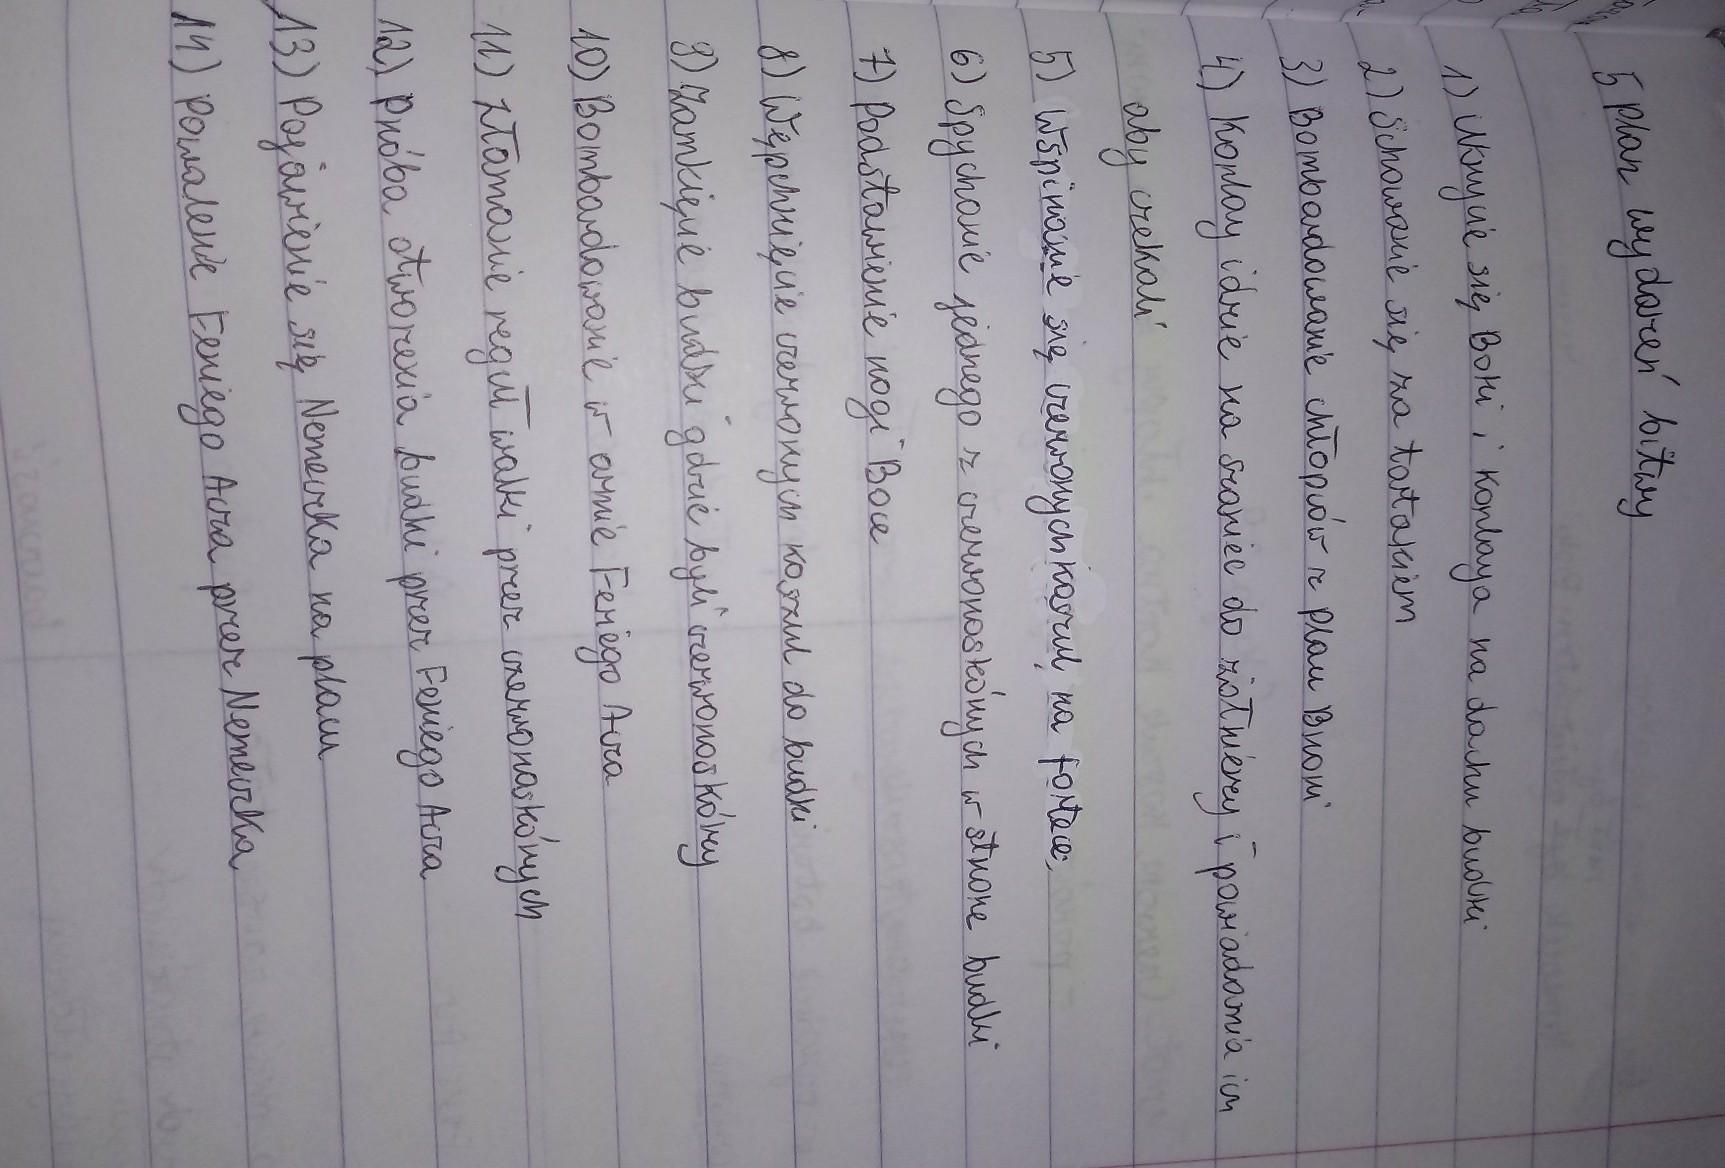 5 plan wydarzeń bitwy
1) Ukrycie się Boki i Konlaya na dachu budki
2) Schowanie się za tartakiem
3) Bombardowanie chłopców z placu Broni
4) Konlay idzie na szaniec do żołnierzy i powiadamia ich
aby czekali
5) Wspinanie się czerwonych koszul, na fortece,
6) Spychanie jednego z czerwonoskórych w stronę budki
7) Podstawienie nogi Boce
8) Wepchnięcie czerwonych koszul do budki
9) Zamknięcie budki gdzie byli czerwonoskórzy
10) Bombardowanie w armie Feriego Acza
11) złamanie reguł walki przez czerwonoskórych
12) Próba otworzenia budki przez Feriego Acza
13) Pojawienie się Nemeczka na placu
14) Powalenie Feriego Acza przez Nemeczka